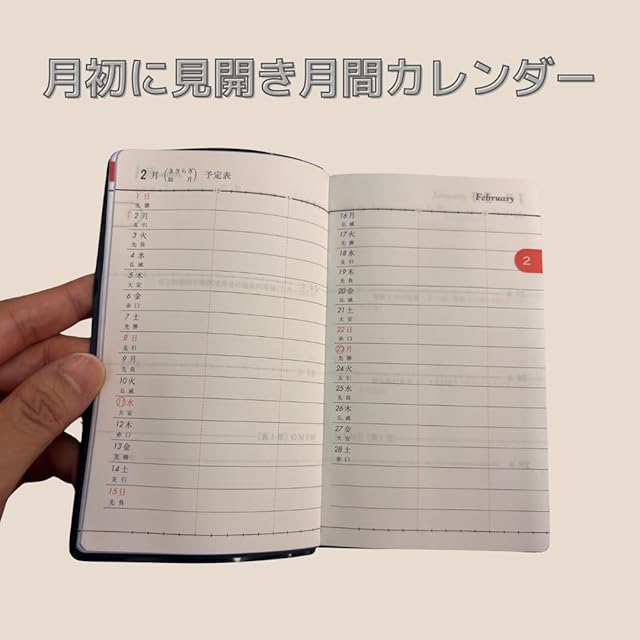 月初に見開き月間カレンダー
2月(きさらぎ
如 月)予定表
1 日
先勝
2 月
友引
3 火
先負
4 水
仏滅
5 木
大安
6 金
赤口
7 土
先勝
8 日
友引
9 月
先負
10 火
仏滅
11 水
大安
12 木
赤口
13 金
先勝
14 土
友引
15 日
先負
February
2
16 月
仏滅
17 火
先勝
18 水
友引
19 木
先負
20 金
仏滅
21 土
大安
22 日
赤口
23 月
先勝
24 火
友引
25 水
先負
26 木
仏滅
27 金
大安
28 土
赤口